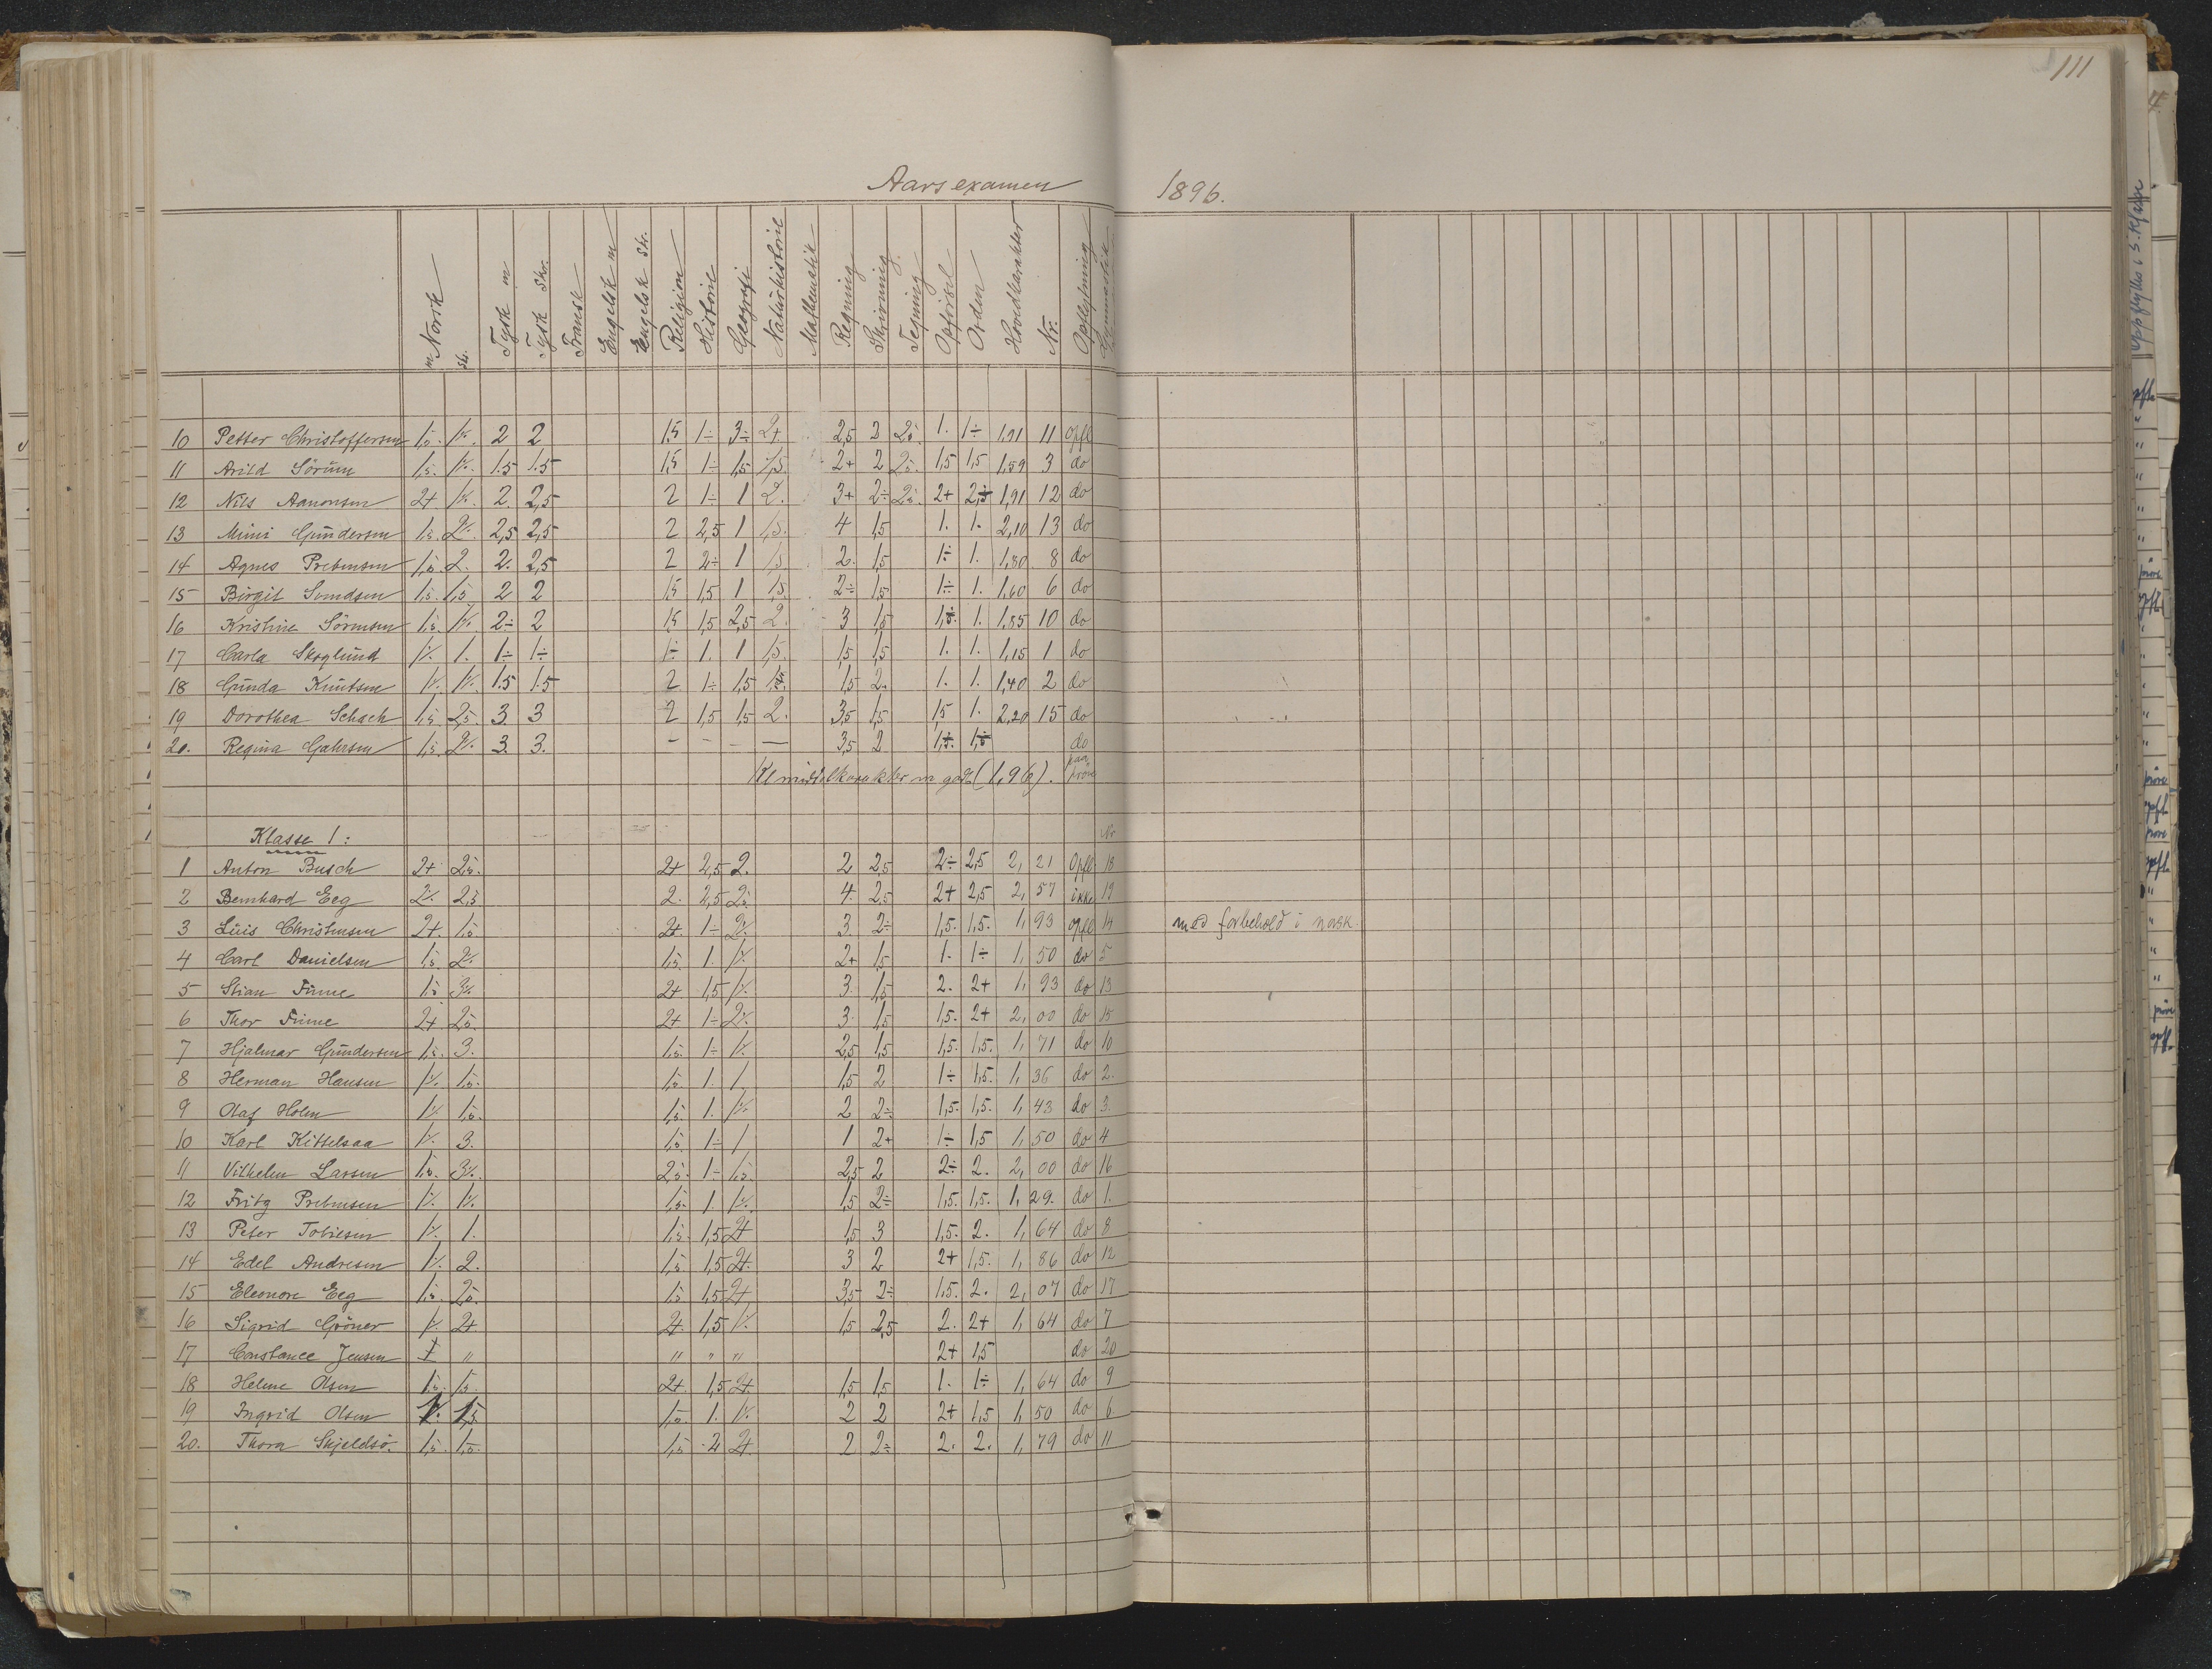 111
Aarsexamen 1896.
m Norsk sk. Tysk m Tysk Skr. Fransk Engelsk m Engelsk Skr. Religion Historie Geografi Naturhistorie Mathematik Regning Skrivning Tegning Opførsel Orden Hovedkarakter Nr. Opflytning Gymnastik
10 Petter Christoffersen 1,5. 1÷. 2 2 1,5 1÷ 3÷ 2+ 2,5 2 2,5. 1. 1÷ 1,91 11 opfl
11 Arild Sörum 1,5. 1÷. 1.5 1.5 1,5 1÷ 1,5 1,5. 2+ 2 2,5. 1,5 1,5 1,59 3 do
12 Nils Aanonsen 2+ 1÷. 2. 2,5 2 1÷ 1 2. 3+ 2÷ 2,5. 2+ 2÷ 1,91 12 do
13 Mimi Gundersen 1,5. 2÷. 2,5 2,5 2 2,5 1 1,5. 4 1,5 1. 1. 2,10 13 do
14 Agnes Prebensen 1,5. 2. 2. 2,5 2 2÷ 1 1,5 2. 1,5 1÷ 1. 1,80 8 do
15 Birgit Svendsen 1,5. 1,5 2 2 1,5 1,5 1 1,5. 2÷ 1,5 1÷ 1. 1,60 6 do
16 Kristine Sörensen 1,5. 1÷. 2÷ 2 1,5 1,5 2,5 2. 3 1,5 1÷. 1. 1,85 10 do
17 Carla Skoglund 1÷. 1. 1÷ 1÷ 1÷ 1. 1 1,5. 1,5 1,5 1. 1. 1,15 1 do
18 Gunda Knutsen 1÷. 1÷. 1.5 1.5 2 1÷ 1,5 1,5. 1,5 2. 1. 1. 1,40 2 do
19 Dorothea Schach 1,5 2,5. 3. 3 2 1,5 1,5 2. 3,5 1,5 1,5 1. 2,20 15 do
20. Regina Gahrsen 1,5. 2÷. 3. 3. - - - — 3,5 2 1÷. 1÷ do
paa prøve
Kl middelkarakter m godt (1,96).
Klasse 1: Nr
1 Anton Busch 2+ 2,5. 2+ 2,5 2. 2 2,5 2÷ 2,5 2, 21 Opfl 18
2 Bernhard Eeg 2÷. 2,5 2. 2,5 2,5. 4. 2,5 2+ 2,5 2, 57 ikke 19
3 Luis Christensen 2+. 1,5 2+. 1÷ 2÷. 3. 2÷ 1,5. 1,5. 1, 93 opfl 14 med forbehold i norsk.
4 Carl Danielsen 1,5. 2÷. 1,5. 1. 1÷. 2+ 1,5 1. 1÷ 1, 50 do 5
5 Stian Finne 1,5 3÷. 2+ 1,5 1÷. 3. 1,5 2. 2+ 1, 93 do 13
6 Thor Finne 2+ 2,5. 2+ 1÷ 2÷. 3. 1,5 1,5. 2+ 2, 00 do 15
7 Hjalmar Gundersen 1,5. 3. 1,5. 1÷ 1÷. 2,5 1,5 1,5. 1,5. 1, 71 do 10
8 Herman Hansen 1÷. 1,5. 1,5. 1. 1. 1,5 2 1÷ 1,5. 1, 36 do 2.
9 Olaf Holm 1÷ 1,5. 1,5. 1. 1÷. 2 2÷ 1,5. 1,5. 1, 43 do 3.
10 Karl Kittelsaa 1÷. 3. 1,5. 1÷ 1 1 2+ 1÷ 1,5 1, 50 do 4
11 Vilhelm Larsen 1,5. 3÷. 2,5. 1÷ 1,5. 2,5 2 2÷ 2. 2, 00 do 16
12 Fritz Prebensen 1÷. 1÷. 1,5. 1. 1÷. 1,5 2÷ 1,5. 1,5. 1, 29. do 1.
13 Peter Tobiesen 1÷. 1. 1,5. 1,5 2+ 1,5 3 1,5. 2. 1, 64 do 8
14 Edel Andresen 1÷. 2. 1,5 1,5 2+. 3 2 2+ 1,5. 1, 86 do 12
15 Eleonore Eeg 1,5. 2,5. 1,5 1,5 2+ 3,5 2÷ 1,5. 2. 2, 07 do 17
16 Sigrid Gröner 1÷. 2+ 2+. 1,5 1÷. 1,5 2,5 2. 2+ 1, 64 do 7
17 Constance Jensen " " " " 2+ 1,5 do 20
18 Helene Olsen 1,5. 1,5. 2+. 1,5 2+. 1,5 1,5 1. 1÷ 1, 64 do 9
19 Ingrid Olsen 1÷. 1,5 1,5. 1. 1÷. 2 2 2+ 1,5 1, 50 do 6
20. Thora Skjeldsö. 1,5. 1,5. 1,5 2 2+. 2 2÷ 2. 2. 1, 79 do 11
Opflyttes i 5. klasse